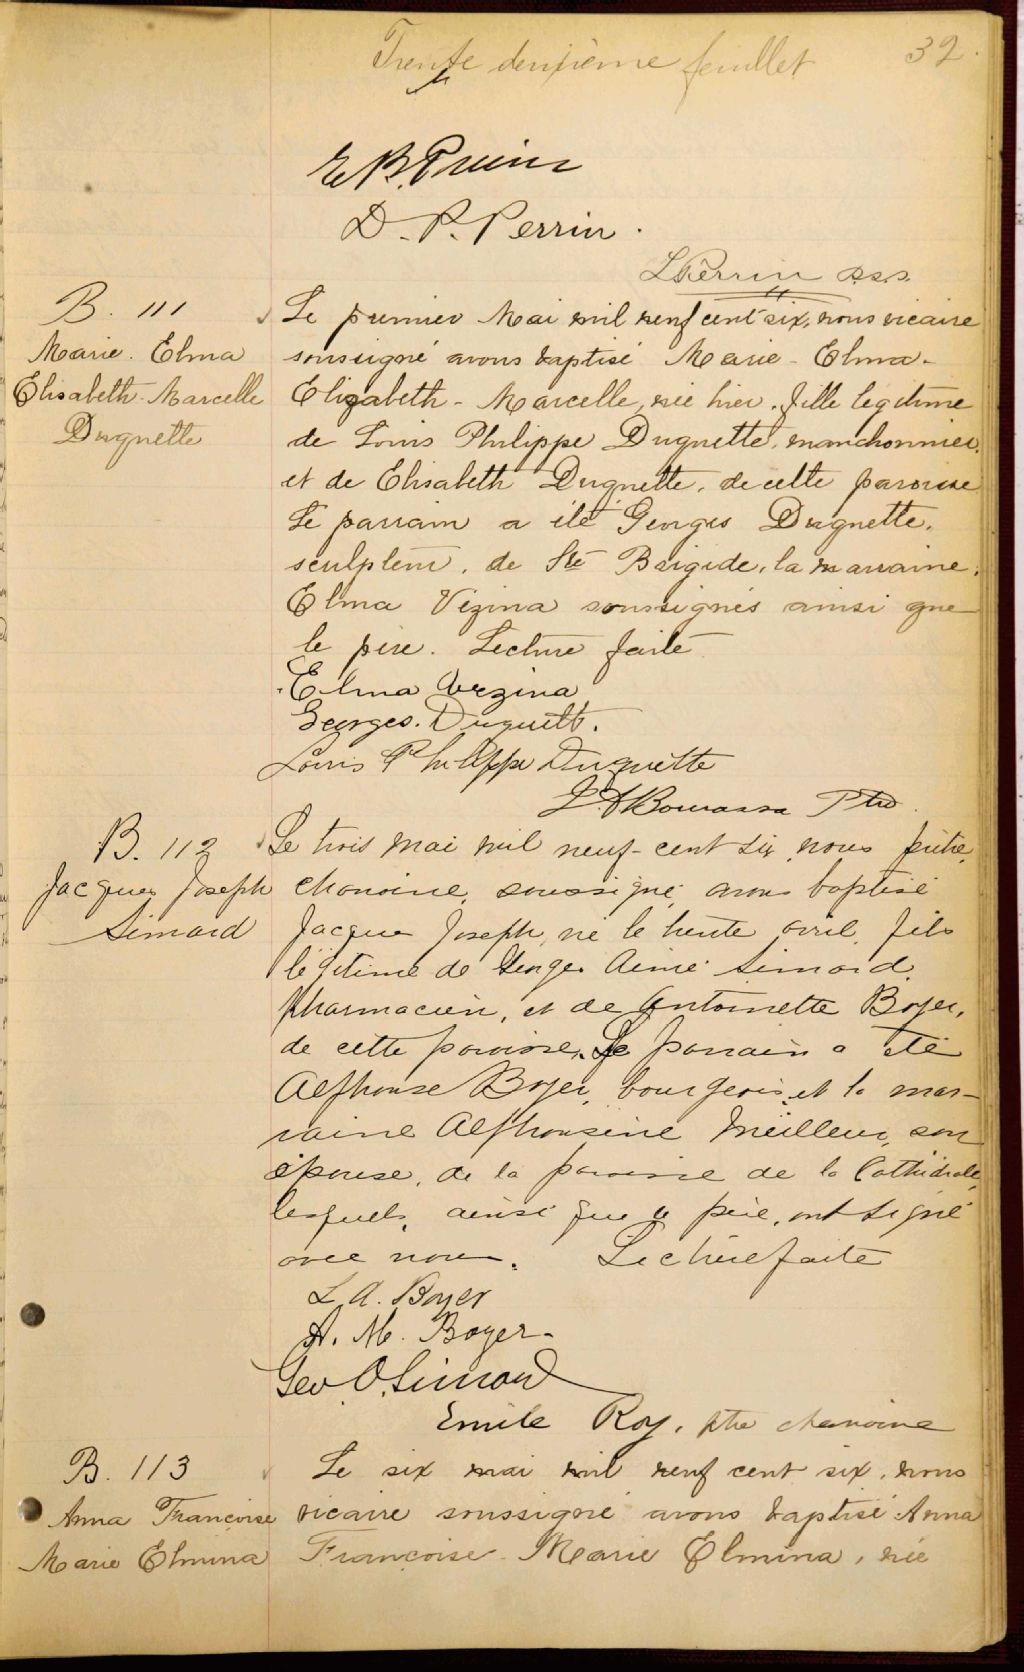 Trente deuxième feuillet 32.
E. B. Perrin
D. P. Perrin.
L Perrin p.s.s.
B. 111
Marie. Elma
Elisabeth. Marcelle
Duquette
Le premier Mai mil neuf cent six, nous vicaire
soussigné avons baptisé Marie - Elma -
Elizabeth - Marcelle, née hier. fille légitime
de Louis Philippe Duquette, manchonnier
et de Elisabeth Duquette, de cette paroisse
Le parrain a été Georges Duquette,
sculpteur, de Ste Brigide, la marraine,
Elma Vézina soussignés ainsi que
le père. Lecture faite
Elma Vezina
Georges. Duquett.
Louis Philippe Duquette
Bourassa Ptre
B. 112
Jacques Joseph
Simard
Le trois mai mil neuf-cent six, nous prêtre,
chanoine, soussigné, avons baptisé
Jacques Joseph, né le trente avril, fils
légitime de Georges Aimé Simard,
pharmacien, et de Antoinette Boyer,
de cette paroisse. Le parrain a été
Alphonse Boyer, bourgeois, et la mar-
raine Alphonsine Meilleur, son
épouse, de la paroisse de la Cathédrale,
lesquels, ainsi que le père, ont signé
avec nous. Lecture faite
L. A. Boyer
A. M. Boyer -
Geo. A. Simard
Emile Roy, ptre chanoine
B. 113
Anna Françoise
Marie Elmina
Le six mai mil neuf cent six, nous
vicaire soussigné avons baptisé Anna
Françoise Marie Elmina, née